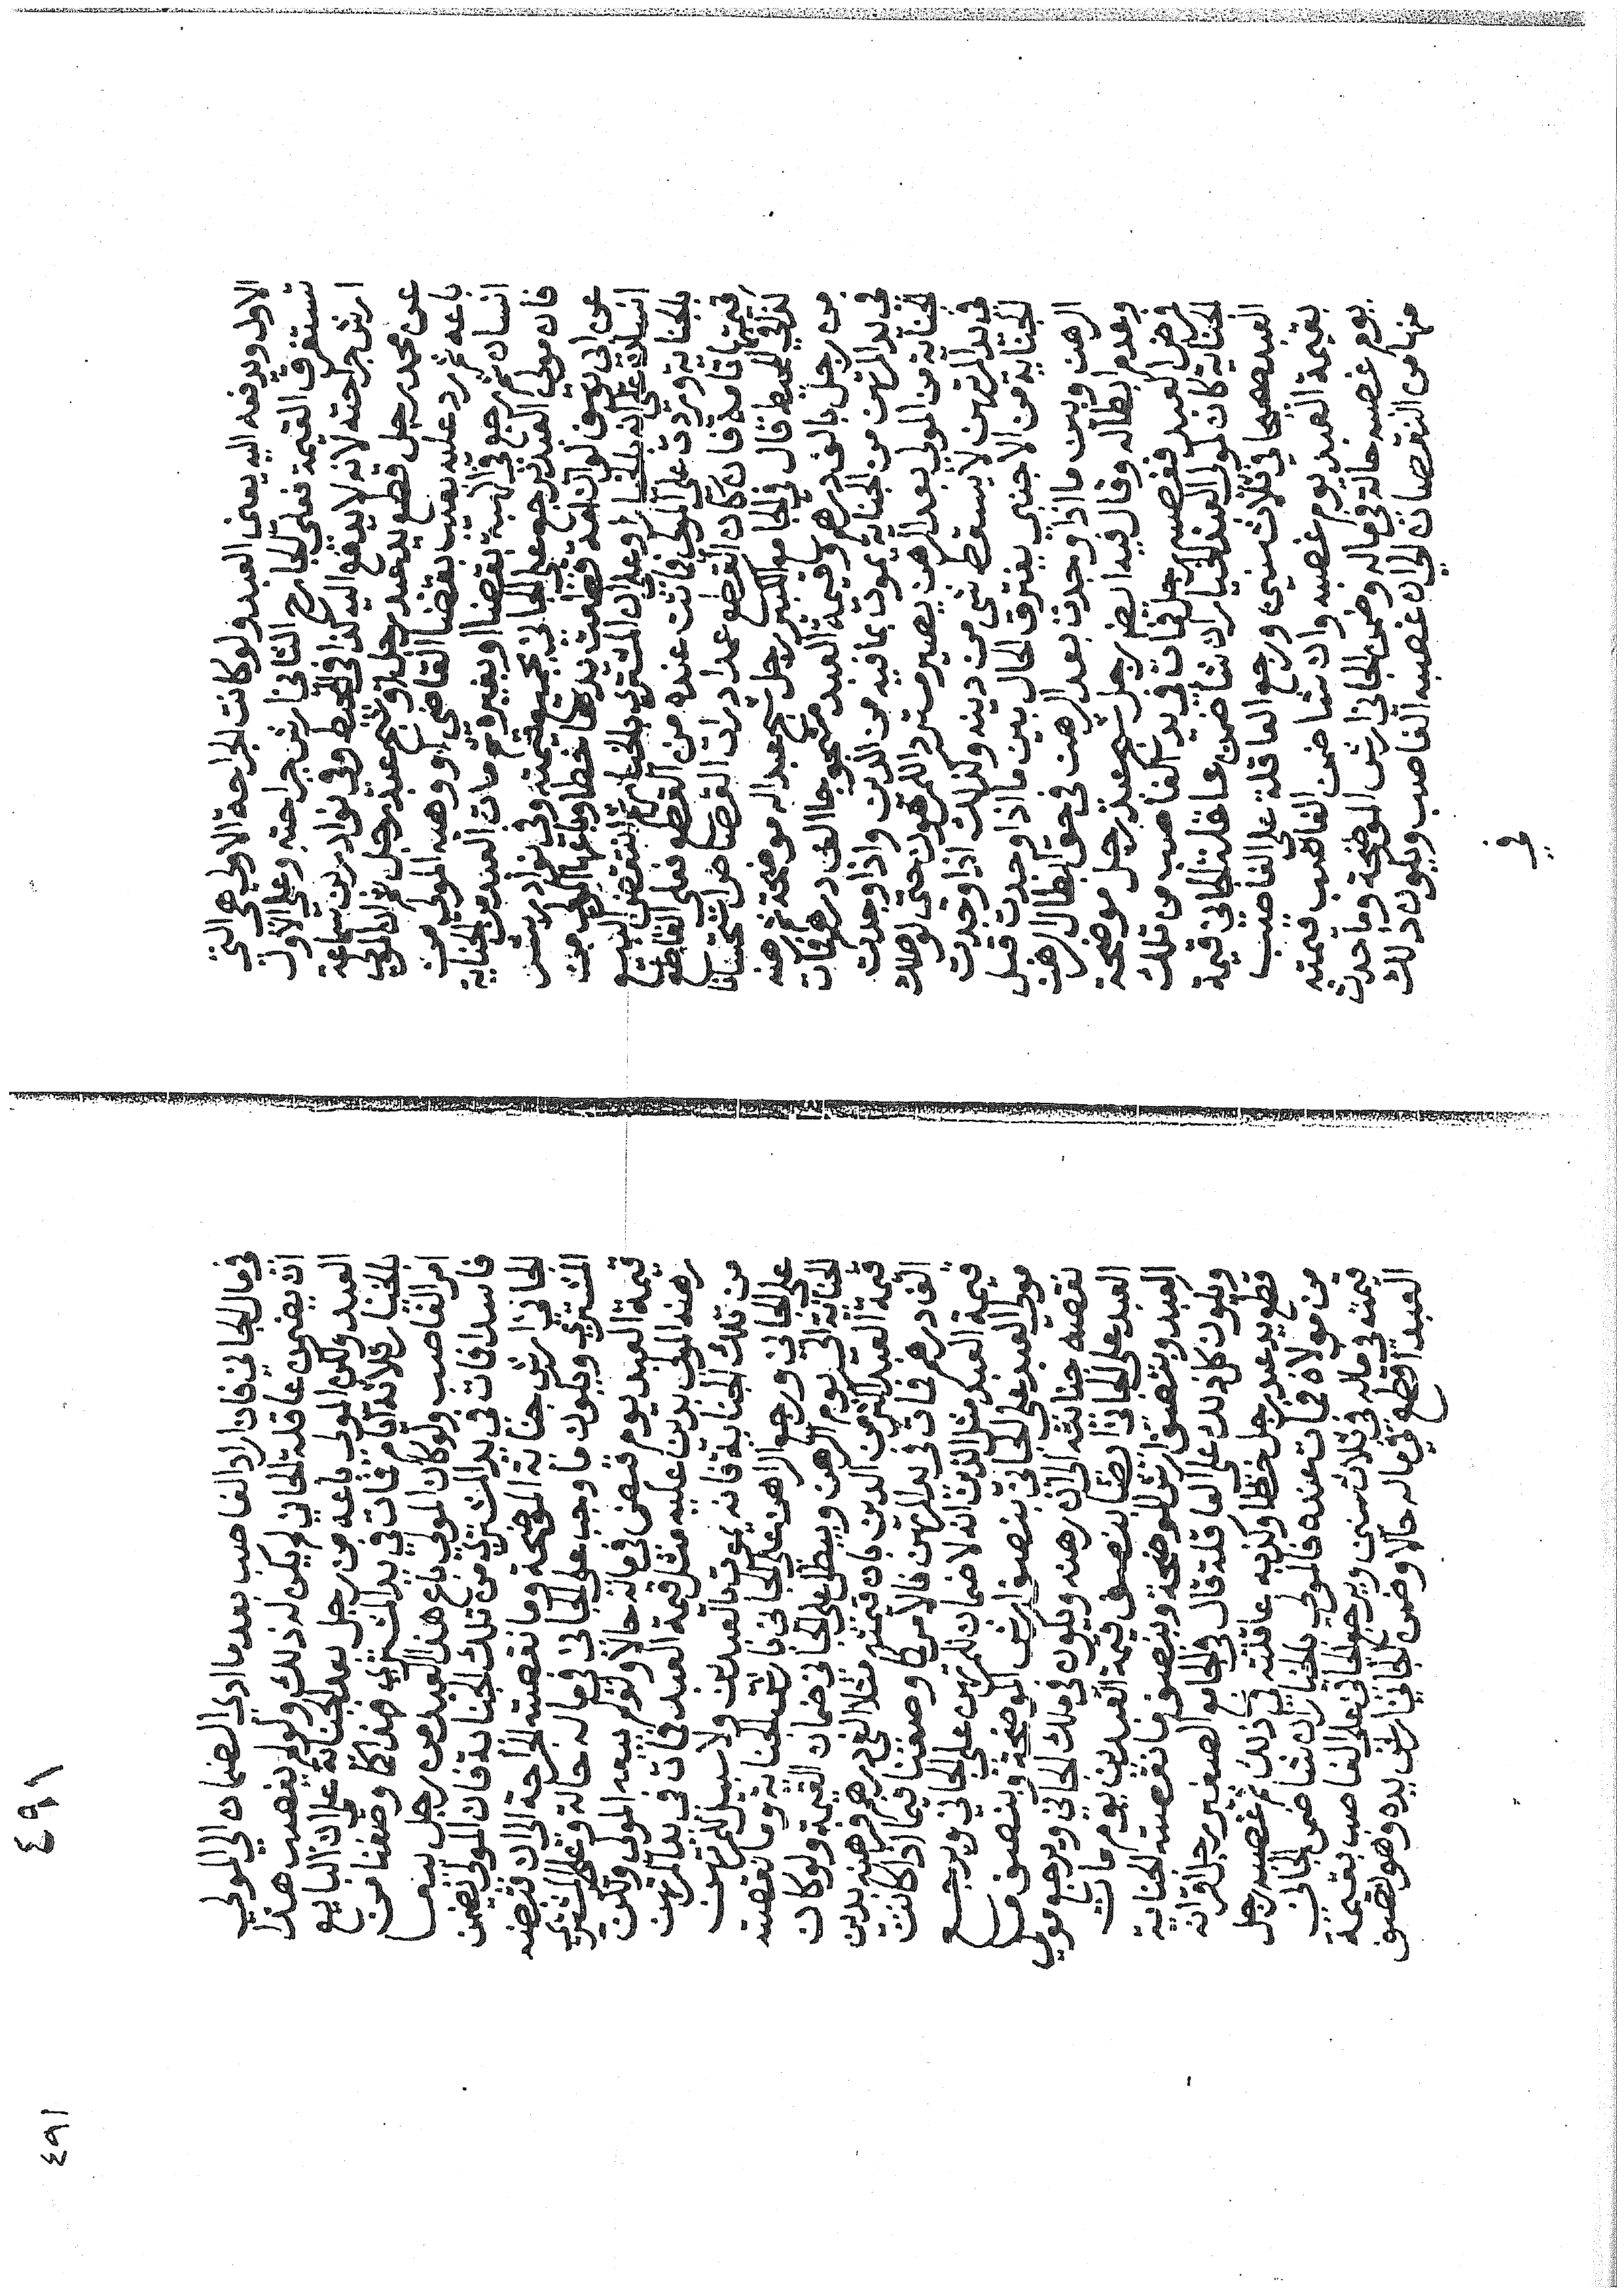 الاول ويدفعه اليه يعني العبد ولو كانت الجراحة الاولى هي التي
تستغرق القيمة فعلى الجارح الثاني ارش جراحته وعلى الاول
ارش جراحته لانه لا يدفع اليه كذا في المحيط وفي نوادر بن سماعة
عن محمد رجل قطع يد عبد رجل او شج عبد رجل ثم ان المولى
باعه ثم رد عليه بعيب بقضا القاضي او وهبه المولى من
انسان ثم رجع في الهبة بقضا او بغير ثم مات العبد من الجناية
فان مولى العبد يرجع على الجاني بجميع قيمته وفي نوادر بشر
عن ابي يوسف لو ان امة قطعت يدها خطا وباعها المولى من
انسان على انه بالخيار او على ان المشتري بالخيار ثم انتقض البيع
بالجناية وردت على المولى فماتت عنده من القطع فعلى القاطع
قيمتها تامة فان كان القطع عمدا درات القصاص استحسانا
كذا في المحيط قال في الجامع الكبير رجل شج عبدا له موضحة ثم رهنه
من رجل بالف درهم وقيمة العبد مشجوجا الف درهم فمات
في يد المرتهن من الجناية يموت بما فيه من الدين واذا وجدت
الجناية من المولى بعد الرهن يصير مستردا للمرهون حتى لو هلك
في يد المرتهن لا يسقط شي من دينه ولذلك اذا وجدت
الجناية من الاجنبي يفترق الحال بين ما اذا وجدت قبل
الرهن وبين ما اذا وجدت بعد الرهن في حق ابطال الرهن
وعدم ابطاله وقال فيه ايضا رجل شج عبد رجل موضحة
فرض العبد فغصبه رجل فمات في يد الغاصب من تلك
الجناية كان لمولى العبد الخيار ان شا ضمن عاقلة الجاني قيمة
العبد صحيحا في ثلاث سنين ورجع العاقلة على الغاصب
بقيمة العبد يوم غصبه وان شا ضمن الغاصب قيمته
يوم غصبه حالة في ماله وضمن الجاني ارش الموضحة وما حدث
منها من النقصان الى ان غصبه الغاصب ويكون ذلك
في
في مال الجاني فان اراد الغاصب بعد ما ادى الضمان الى المولى
ان يضمن عاقلة الجاني لم يكن له ذلك ولو لم يغصب هذا
العبد ولكن المولى باعه من رجل بعد الجناية على ان البايع
بالخيار ثلاثة ايام فمات في يد المشتري هذا كما وصفنا من
امر الغاصب ولو كان المولى باع هذا العبد من رجل بيعا
فاسدا فمات في يد المشتري من تلك الجناية فان المولى يضمن
الجاني ارش جناية الموضحة وما نقصته الجراحة الى ان قبضه
المشتري ويكون ما وجب على الجاني في ماله حالة وعلى المشتري
قيمة العبد يوم قبض في ماله حالا ولو لم يبيعه المولى ولكن
رهنه المولى بدين عليه مثل قيمة العبد فمات في يد المرتهن
من تلك الجناية فانه يموت بالعبدين ولا سبيل للمرتهن
على الجاني ورجع الراهن على الجاني بارش الجناية وما نقصته
الجناية الى يوم الرهن ويبطل على الجاني ضمان القيمة ولو كان
قيمة العبد اكثر من الدين بان قيمته مثلا الفي درهم فرهنه بدين
الف درهم فمات في يد المرتهن فالامر كما وصفنا فيما اذا كانت
قيمة العبد مثل الدين انه لا ضمان للمرتهن على الجاني ويرجع
مولى العبد على الجاني بنصف ارش الموضحة وبنصف ما
نقصته جنايته الى ان رهنه ويكون في ملك الجاني ويرجع مولى
العبد على الجاني ايضا بنصف قيمة العبدين يوم مات
العبد وبنصف ارش الموضحة وبنصف ما نقصته الجناية
ويكون كل ذلك على العاقلة قال في الجامع الصغير رجل اقر انه
قطع يد عبد رجل خطا وكذبه عاقلته في ذلك ثم غصبه رجل
من مولاه فمات عنده فالمولى بالخيار ان شا ضمن الجاني
قيمته في ماله في ثلاث سنين ويرجع الجاني على الغاصب بقيمة
العبد اقطع في ماله حالا وضمن الجاني ارش يده وهو نصف
٤٩١
٤٩١